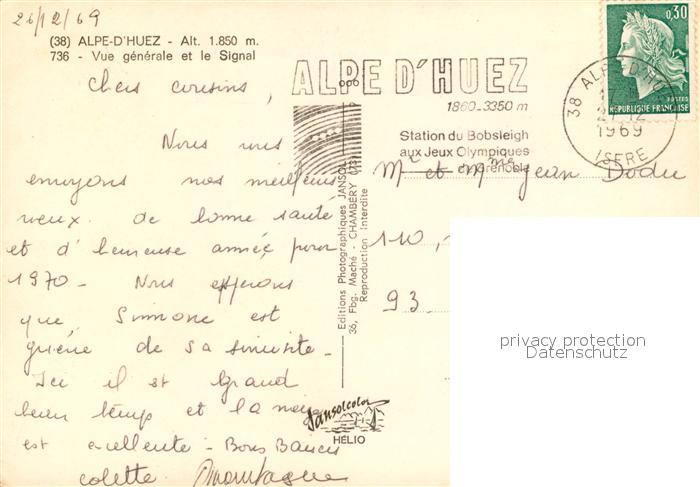 26/12/69
(38) ALPE-D'HUEZ - Alt. 1.850 m.
736 - Vue générale et le Signal
Chers cousins,
Nous vous
envoyons nos meilleurs
vœux de bonne santé
et d'heureuse année pour
1970 - Nous espérons
que Simmone est
guérie de sa sinusite -
Ici il est Grand
beau temps et la neige
est excellente - Bons Baisers
colette
ALPE D'HUEZ
1860-3350 m
Station du Bobsleigh
aux Jeux Olympiques
de Grenoble
38 ALPE D'HUEZ
12
1969
ISERE
0,30
POSTES
REPUBLIQUE FRANÇAISE
Mr et Mme Jean Dodu
110,
93
Editions Photographiques JANSOL
36, Fbg. Maché - CHAMBÉRY (73)
Reproduction Interdite
Jansolcolor
HÉLIO
privacy protection
Datenschutz